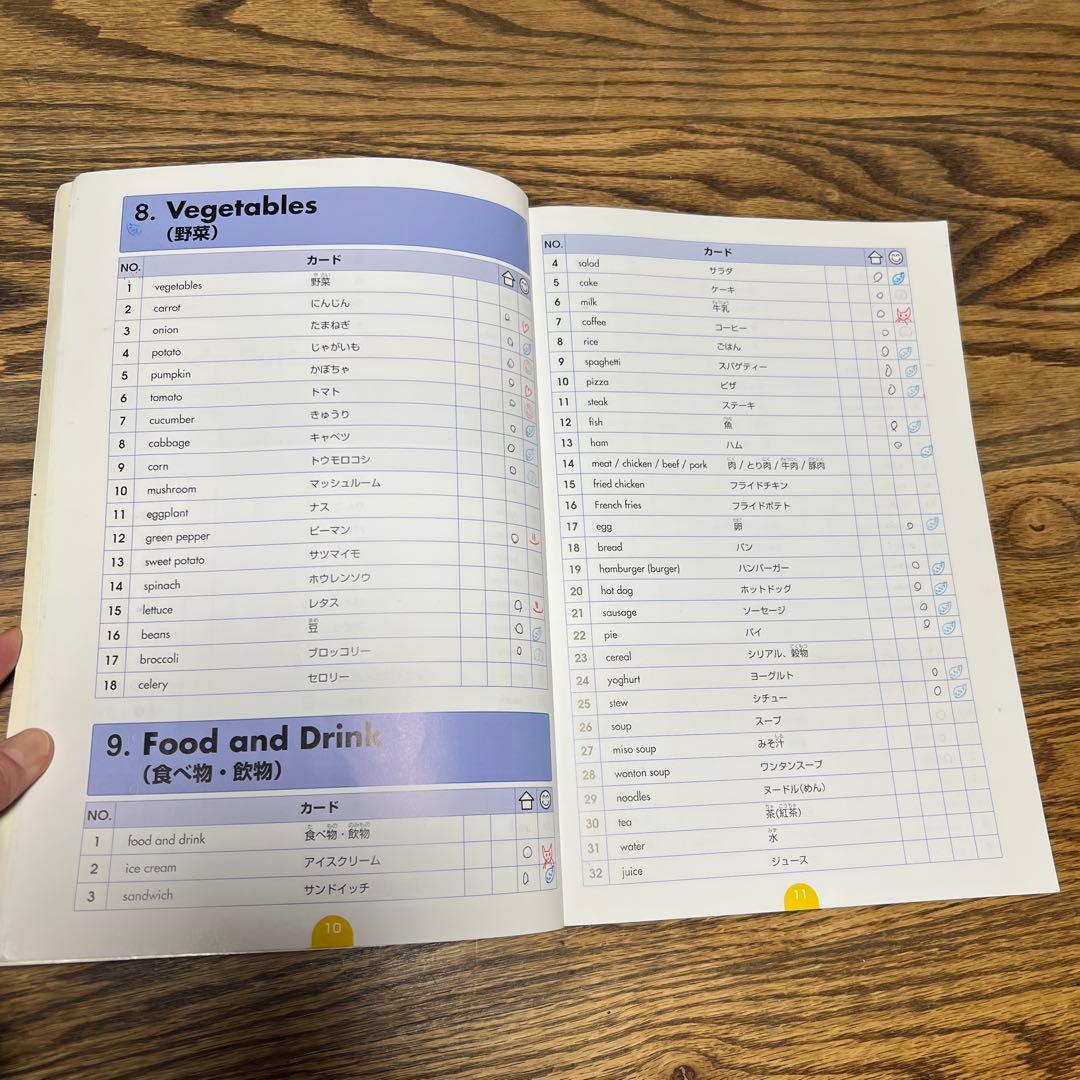 8. Vegetables
(野菜)
NO. カード
1 vegetables 野菜
2 carrot にんじん
3 onion たまねぎ
4 potato じゃがいも
5 pumpkin かぼちゃ
6 tomato トマト
7 cucumber きゅうり
8 cabbage キャベツ
9 corn トウモロコシ
10 mushroom マッシュルーム
11 eggplant ナス
12 green pepper ピーマン
13 sweet potato サツマイモ
14 spinach ホウレンソウ
15 lettuce レタス
16 beans 豆
17 broccoli ブロッコリー
18 celery セロリー
9. Food and Drink
(食べ物・飲物)
NO. カード
1 food and drink 食べ物・飲物
2 ice cream アイスクリーム
3 sandwich サンドイッチ
10
NO. カード
4 salad サラダ
5 cake ケーキ
6 milk 牛乳
7 coffee コーヒー
8 rice ごはん
9 spaghetti スパゲティー
10 pizza ピザ
11 steak ステーキ
12 fish 魚
13 ham ハム
14 meat / chicken / beef / pork 肉 / とり肉 / 牛肉 / 豚肉
15 fried chicken フライドチキン
16 French fries フライドポテト
17 egg 卵
18 bread パン
19 hamburger (burger) ハンバーガー
20 hot dog ホットドッグ
21 sausage ソーセージ
22 pie パイ
23 cereal シリアル、穀物
24 yoghurt ヨーグルト
25 stew シチュー
26 soup スープ
27 miso soup みそ汁
28 wonton soup ワンタンスープ
29 noodles ヌードル(めん)
30 tea 茶(紅茶)
31 water 水
32 juice ジュース
11